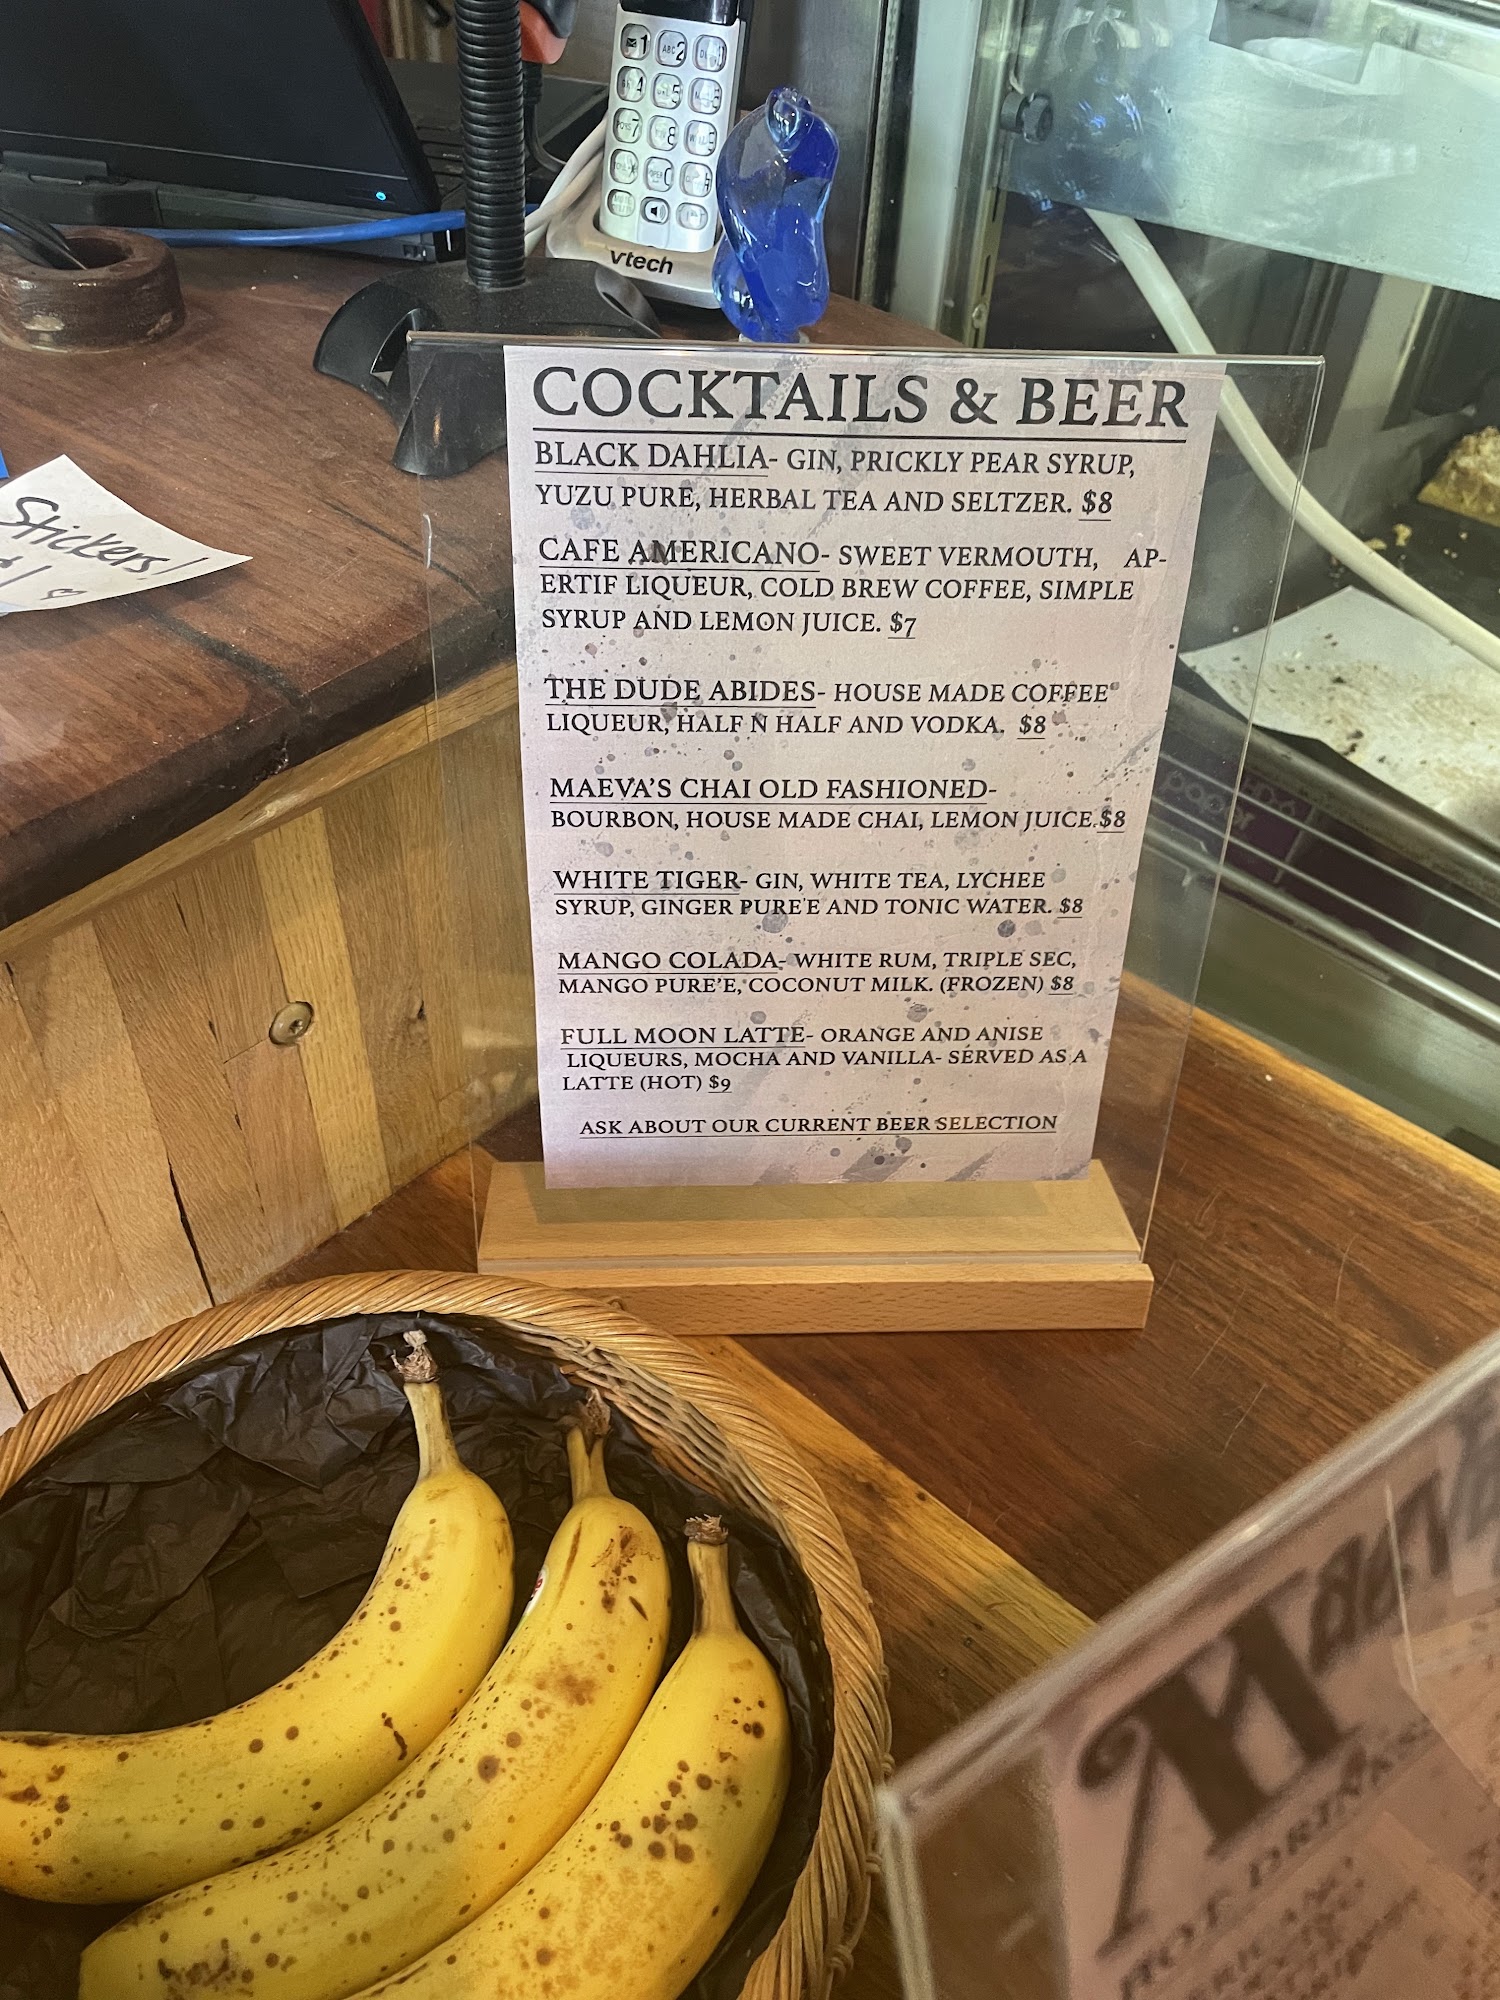 vtech
Stickers!
COCKTAILS & BEER
BLACK DAHLIA- GIN, PRICKLY PEAR SYRUP,
YUZU PURE, HERBAL TEA AND SELTZER. $8
CAFE AMERICANO- SWEET VERMOUTH, AP-
ERTIF LIQUEUR, COLD BREW COFFEE, SIMPLE
SYRUP AND LEMON JUICE. $7
THE DUDE ABIDES- HOUSE MADE COFFEE
LIQUEUR, HALF N HALF AND VODKA. $8
MAEVA'S CHAI OLD FASHIONED-
BOURBON, HOUSE MADE CHAI, LEMON JUICE.$8
WHITE TIGER- GIN, WHITE TEA, LYCHEE
SYRUP, GINGER PURE'E AND TONIC WATER. $8
MANGO COLADA- WHITE RUM, TRIPLE SEC,
MANGO PURE'E, COCONUT MILK. (FROZEN) $8
FULL MOON LATTE- ORANGE AND ANISE
LIQUEURS, MOCHA AND VANILLA- SERVED AS A
LATTE (HOT) $9
ASK ABOUT OUR CURRENT BEER SELECTION
HOT DRINKS